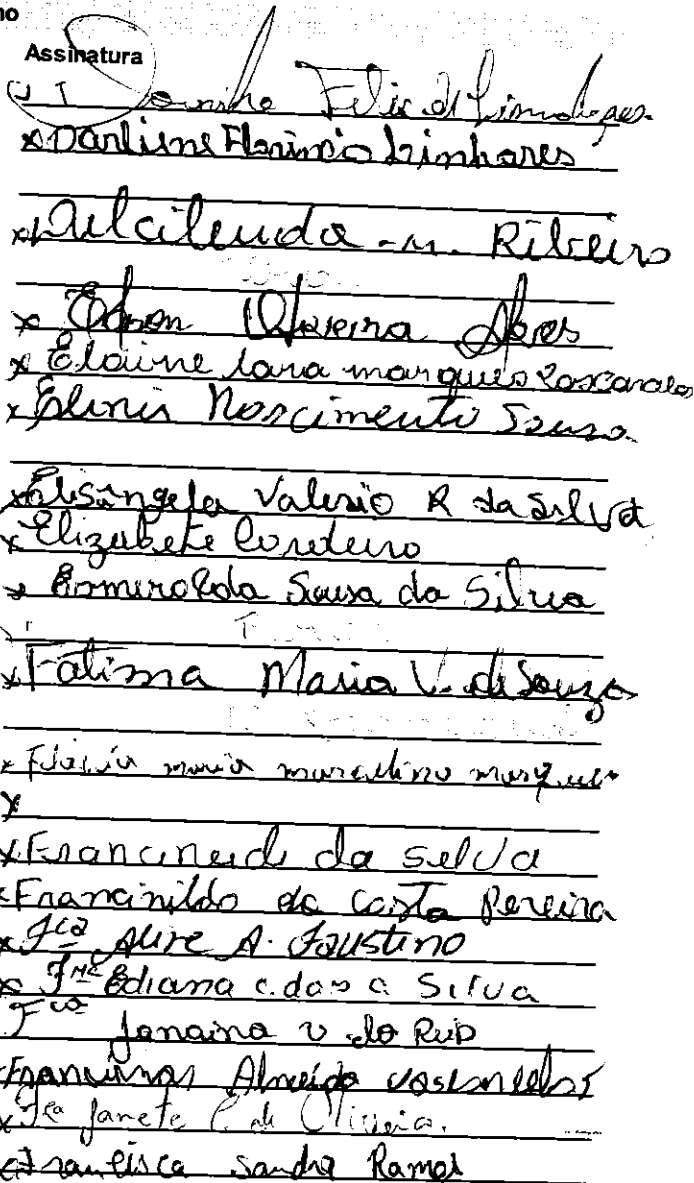 no
Assinatura
Felix de
x Darliene Florinio Linhares
x Dulcileuda - m. Ribeiro
x Edson Oliveira Alves
x Elaine Iara marques vasconcelos
x Elinir Nascimento Sousa
x Elisângela Valerio R da Silva
x Elizabete Cordeiro
x Esmeralda Sousa da Silva
x Fátima Maria V. de Souza
x Flávia maria marcelino marques
x
x Francineide da Silva
x Francinildo da Costa Pereira
x Fca Alire A. Faustino
x Ediana c. dos Silva
Fca Janaina v do
x Almeida vasconcelos
x Fca Janete de Oliveira.
Francisca Sandra Ramos